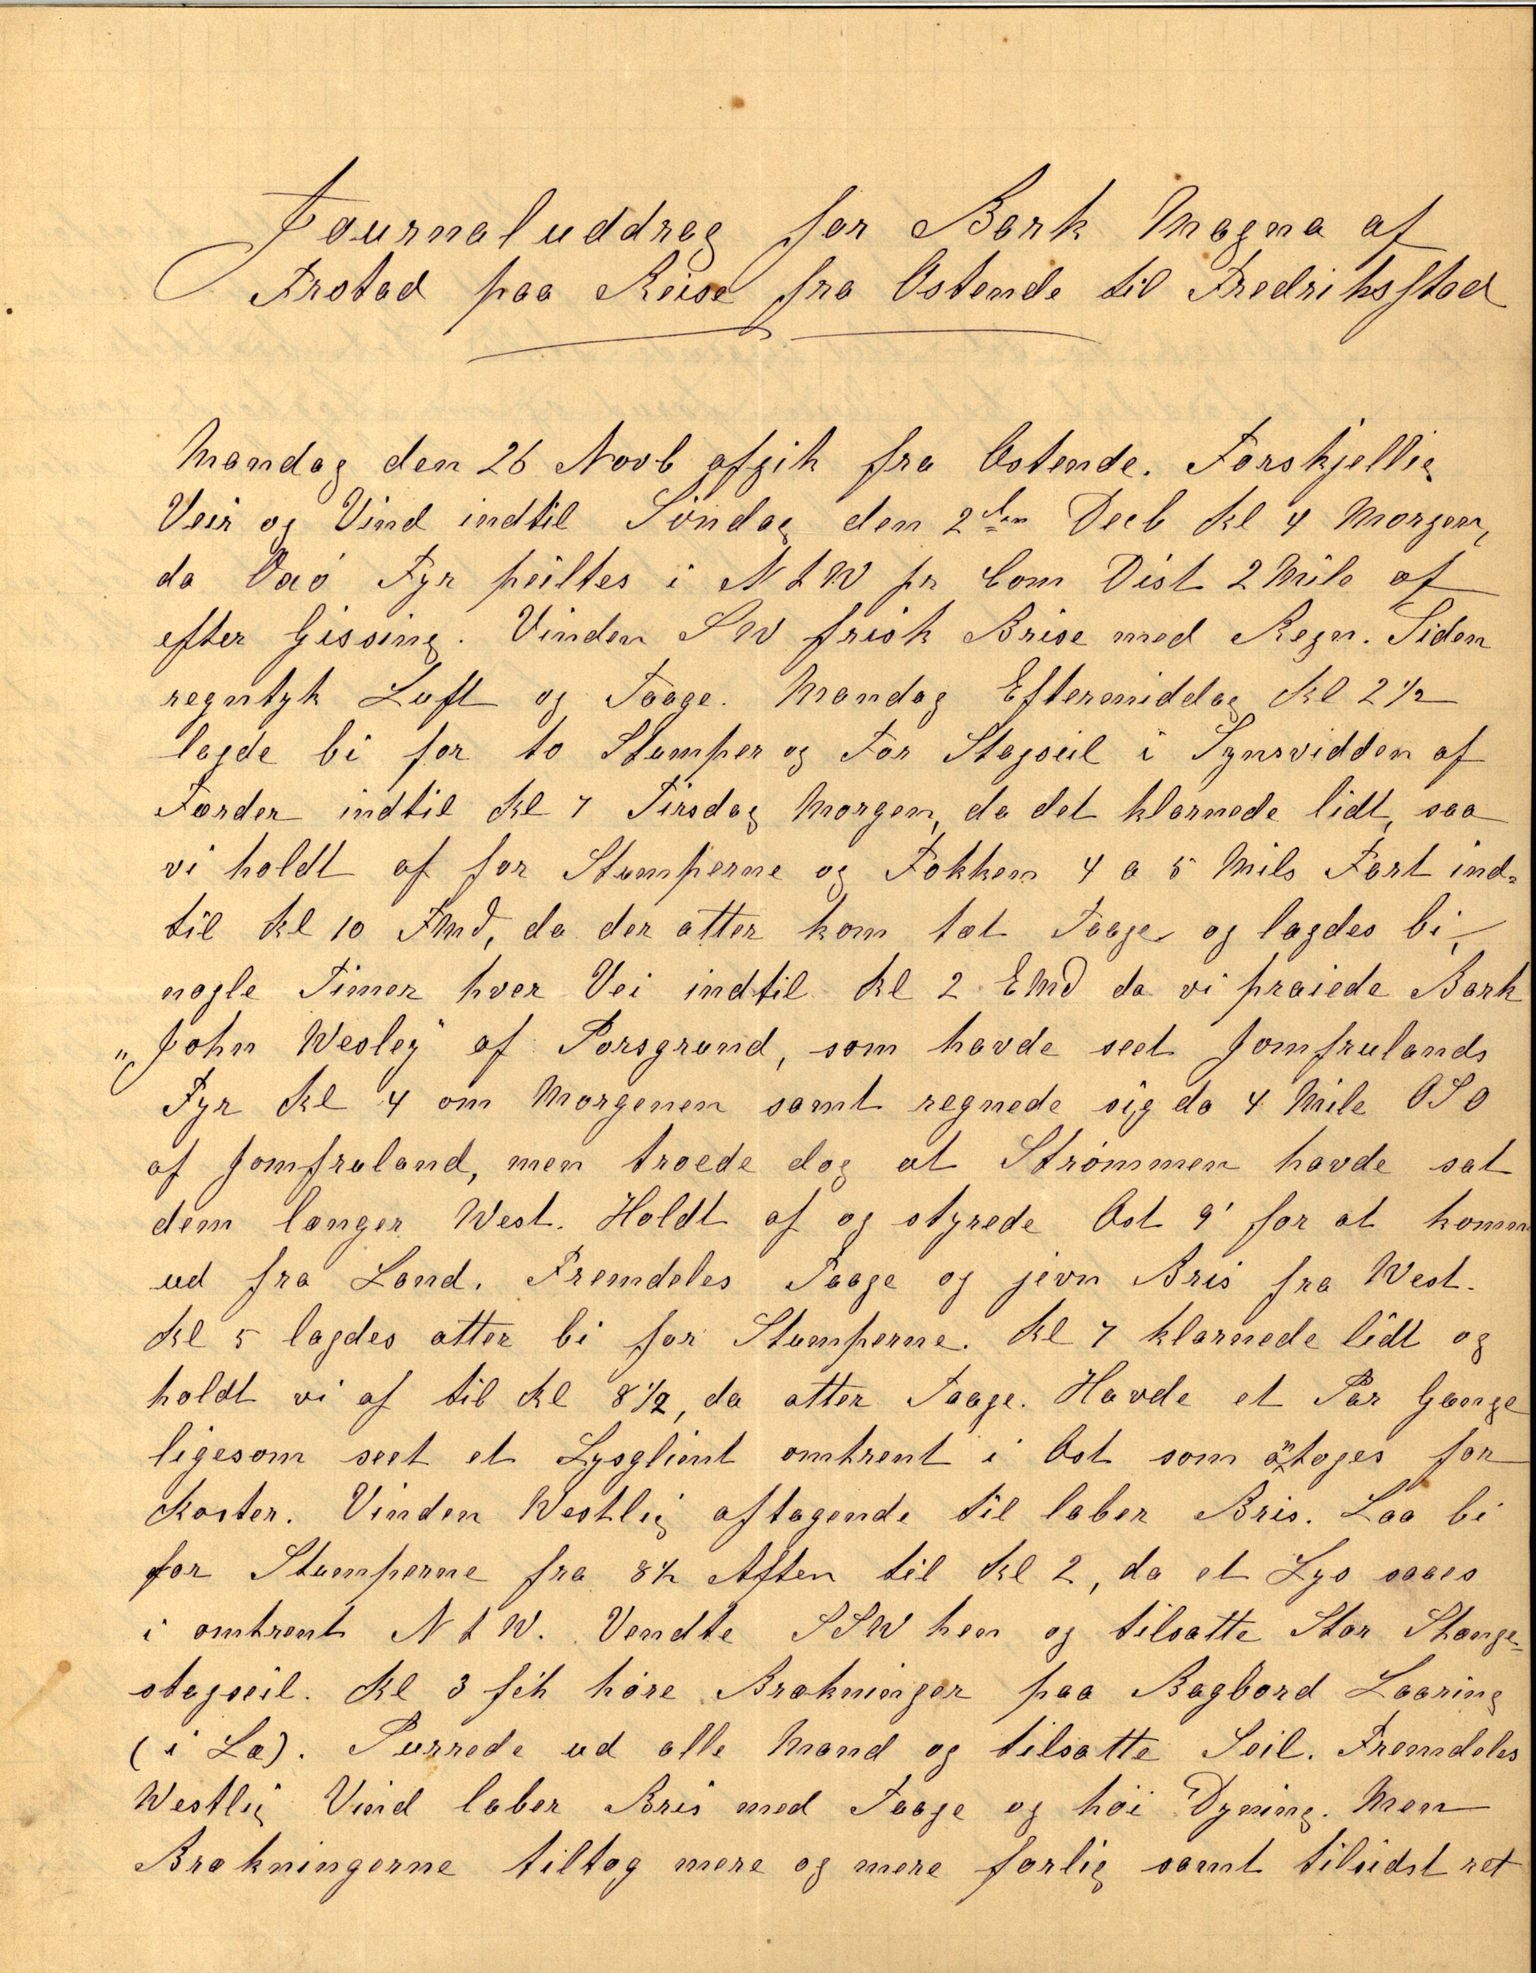 Journaluddrag for Bark Magna af
Frstad paa Reise fra Ostende til Fredriksstad
Mandag den 26 Novb afgik fra Ostende. Forskjellig
Veir og Vind indtil Søndag den 2den Decb Kl 4 Morgen,
da Oxø Fyr peiltes i N t W pr Com Dist 2 Mile af
efter Gissing. Vinden SW frisk Brise med Regn. Siden
regntyk Luft og Taage. Mandag Eftermiddag Kl 2 1/2
lagde bi for to Stumper og For Stagseil i Synsvidden af
Færder indtil Kl 7 Tirsdag Morgen, da det klarnede lidt, saa
vi holdt af for Stumperne og Fokken 4 a 5 Mils Fart ind=
til Kl 10 FMd, da der atter kom tæt Taage og lagdes bi,
nogle Timer hver Vei indtil Kl 2 EMd da vi praiede Bark
„John Wesley" af Porsgrund, som havde seet Jomfrulands
Fyr Kl 4 om Morgenen samt regnede sig da 4 Mile OSO
af Jomfruland, men troede dog at Strømmen havde sat
dem længer West. Holdt af og styrede Ost 9' for at komm
ud fra Land. Fremdeles Taage og jevn Bris fra West.
Kl 5 lagdes atter bi for Stumperne. Kl 7 klarnede lidt og
holdt vi af til Kl 8 1/2, da atter Taage. Havde et Par Gange
ligesom seet et Lysglimt omtrent i Ost som antoges for
Koster. Vinden Westlig aftagende til laber Bris. Laa bi
for Stumperne fra 8 1/2 Aften til Kl 2, da et Lys saaes
i omtrent N t W. Vendte SSW hen og tilsatte Stor Stange=
stagseil. Kl 3 fik høre Brækninger paa Bagbord Laaring
(i Læ). Purrede ud alle Mand og tilsatte Seil. Fremdeles
Westlig Vind laber Bris med Taage og høi Dyning. Men
Brækningerne tiltog mere og mere farlig samt tilsidst ret